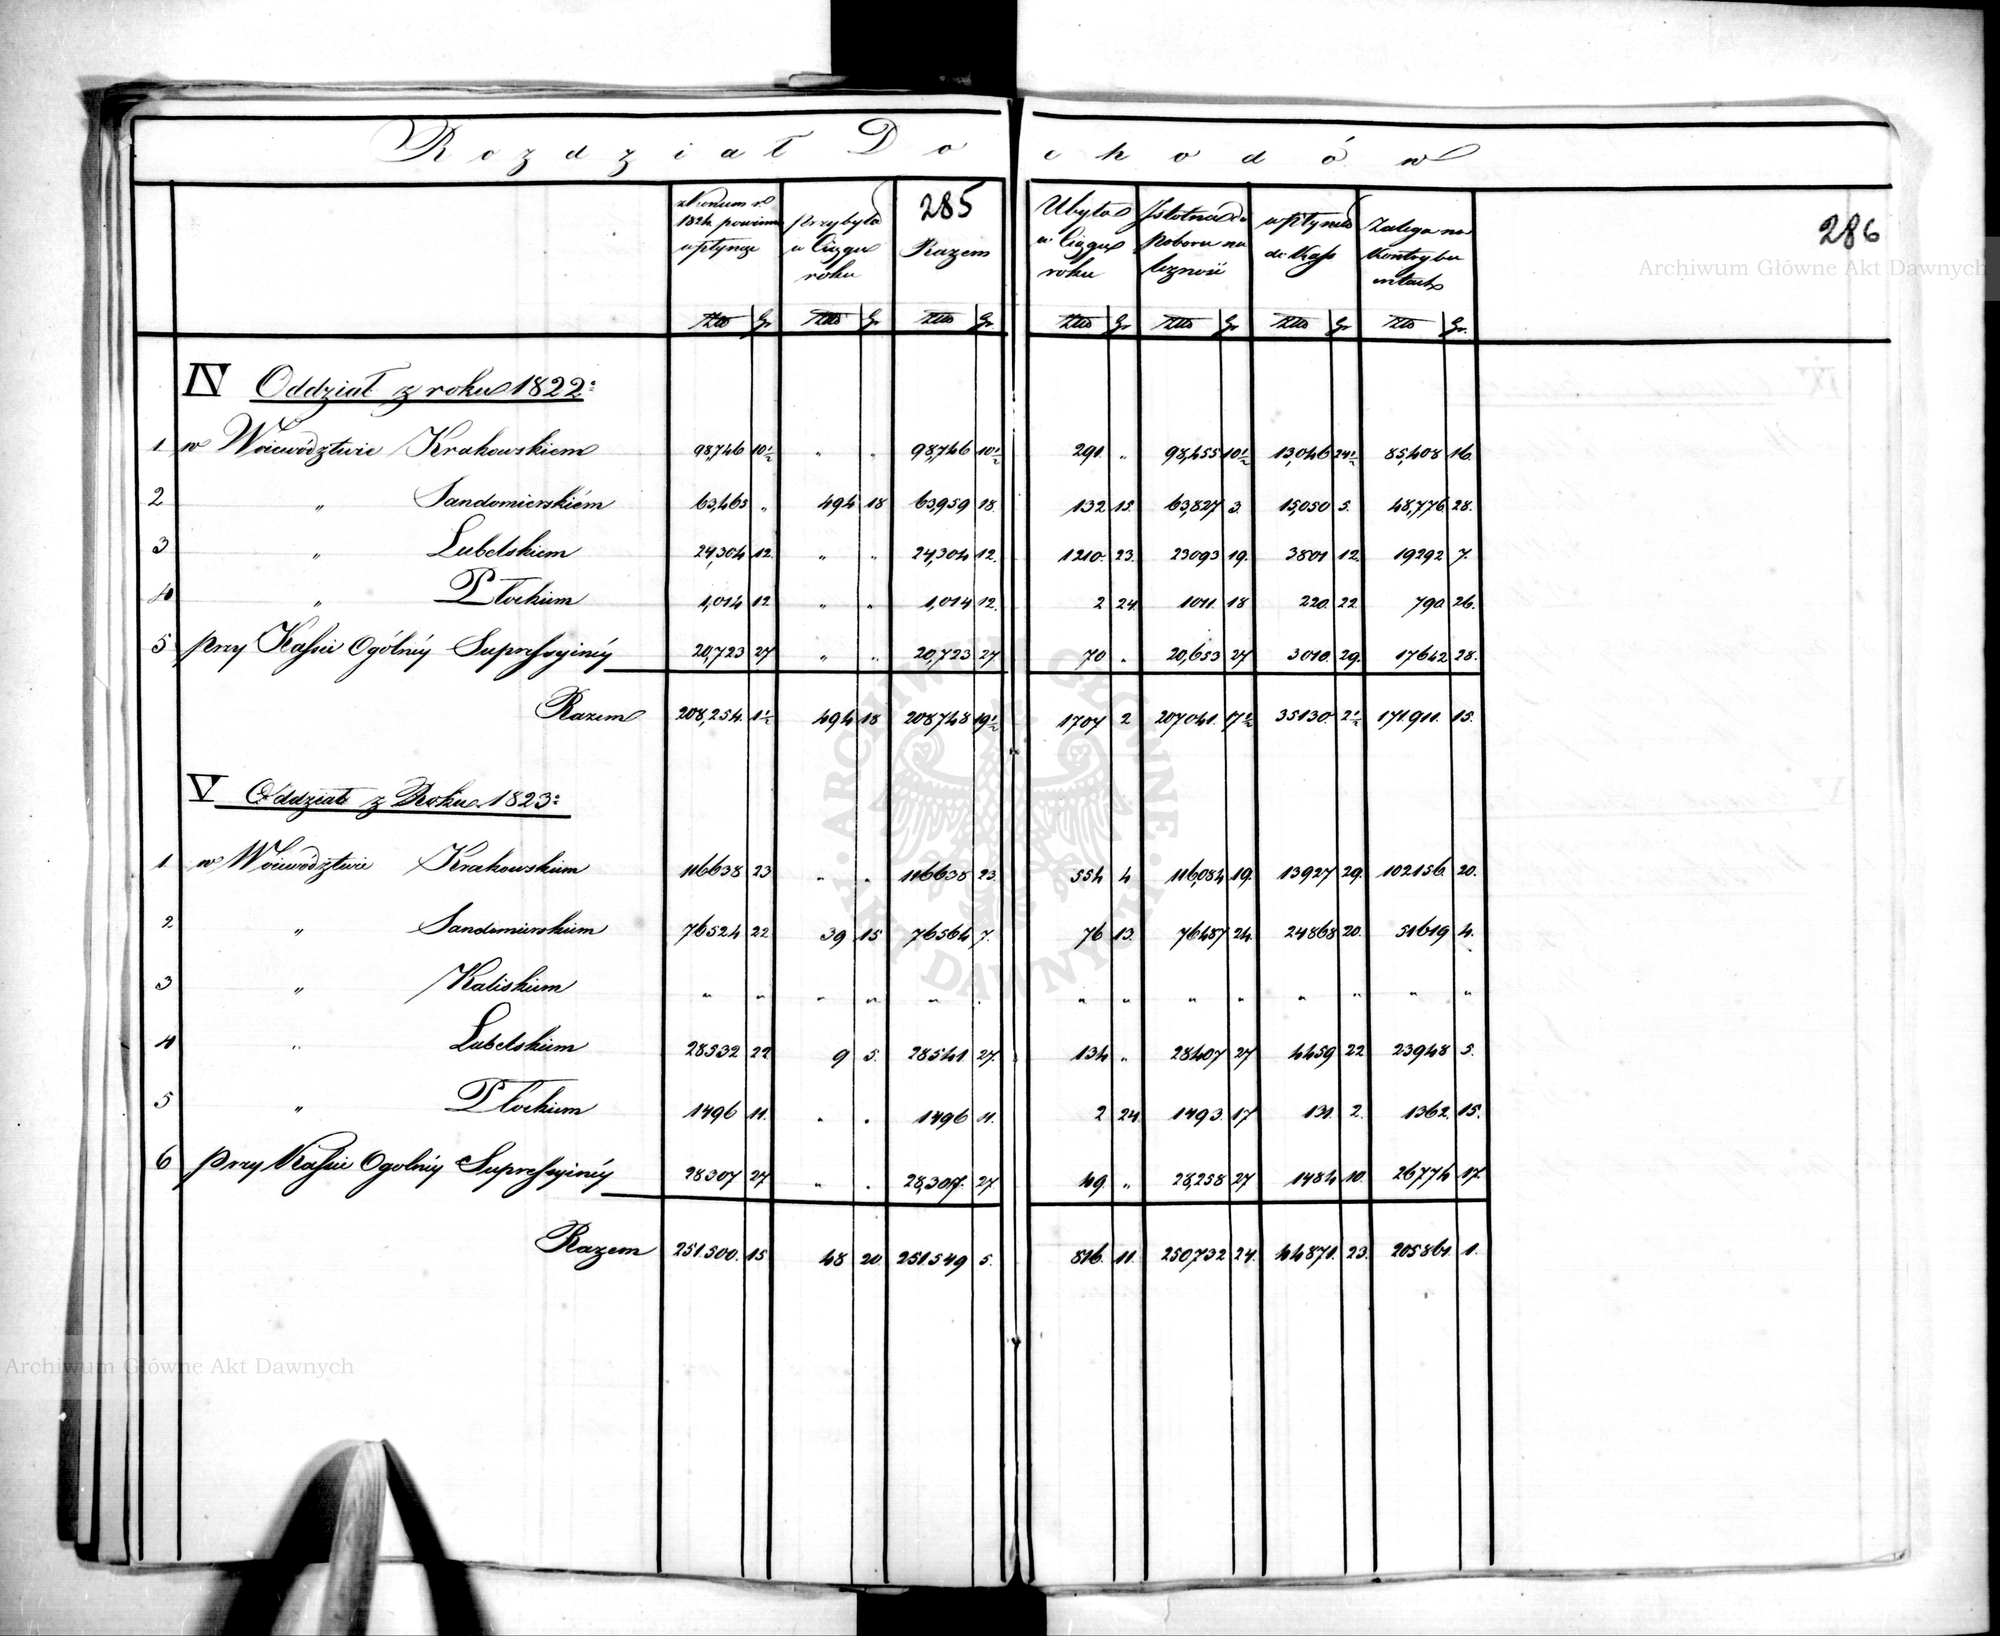 Rozdział Dochodów
285
286
Archiwum Główne Akt Dawnych
1824 powinno wpłynąć
Przybyło w Ciągu roku
Razem
Ubyło w Ciągu roku
Istotna do Poboru należność
wpłynęło do Kass
Zalega na Kontrybuentach
Złto Gr Złto Gr Złto Gr Złto Gr Złto Gr Złto Gr Złto Gr.
IV Oddział z roku 1822:
1 w Woiewództwie Krakowskiem 98,746 10½ " " 98,746 10½ 291 " 98,455 10½ 13,046 24½ 85,408 16.
2 " Sandomierskiém 63,465 " 494 18 63,959 18 132 15. 63,827 3. 15,050 5. 48,776 28.
3 " Lubelskiem 24,304 12. " " 24,304 12. 1210. 23. 23093 19. 3801 12. 19292 7.
4 " Płockiem 1,014 12 " " 1,014 12. 2 24. 1011. 18 220. 22. 790 26.
5 przy Kassie Ogólnéy Supressyinéy 20,723 27 " " 20,723 27 70 " 20,653 27 3010. 29. 17642 28.
Razem 208,254. 1½ 494 18 208748 19½ 1707 2 207041. 17½ 35130. 2½ 171.911. 15.
V Oddział z Roku 1823:
1. w Woiewództwie Krakowskiem 116638 23 " " 116638 23. 554 4 116,084 19. 13927 29. 102156. 20.
2 " Sandomierskiem 76524 22 39 15 76564 7. 76 13. 76487 24. 24868 20. 51619 4.
3 " Kaliskiem " " " " " " " " " " " " "
4 " Lubelskiem 28532 22 9 5. 28541 27. 134 " 28407 27 4459 22 23948 5.
5 " Płockiem 1496 11. " " 1496 11. 2 24. 1493. 17 131. 2. 1362. 15.
6 przy Kassie Ogolnéy Supressyinéy 28307 27 " " 28,307. 27 49 " 28,258 27 1484 10. 26774 17.
Razem 251.500. 15 48 20. 251.549 5. 816. 11. 250732 24. 44871. 23. 205861. 1.
ARCHIWUM GŁÓWNE AKT DAWNYCH
Archiwum Główne Akt Dawnych